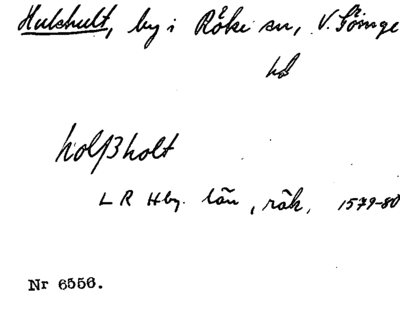 Hulshult, by i Röke sn, V. Göinge
hd
holßholt
L R Hbg. län, räk. 1579-80
Nr 6556.